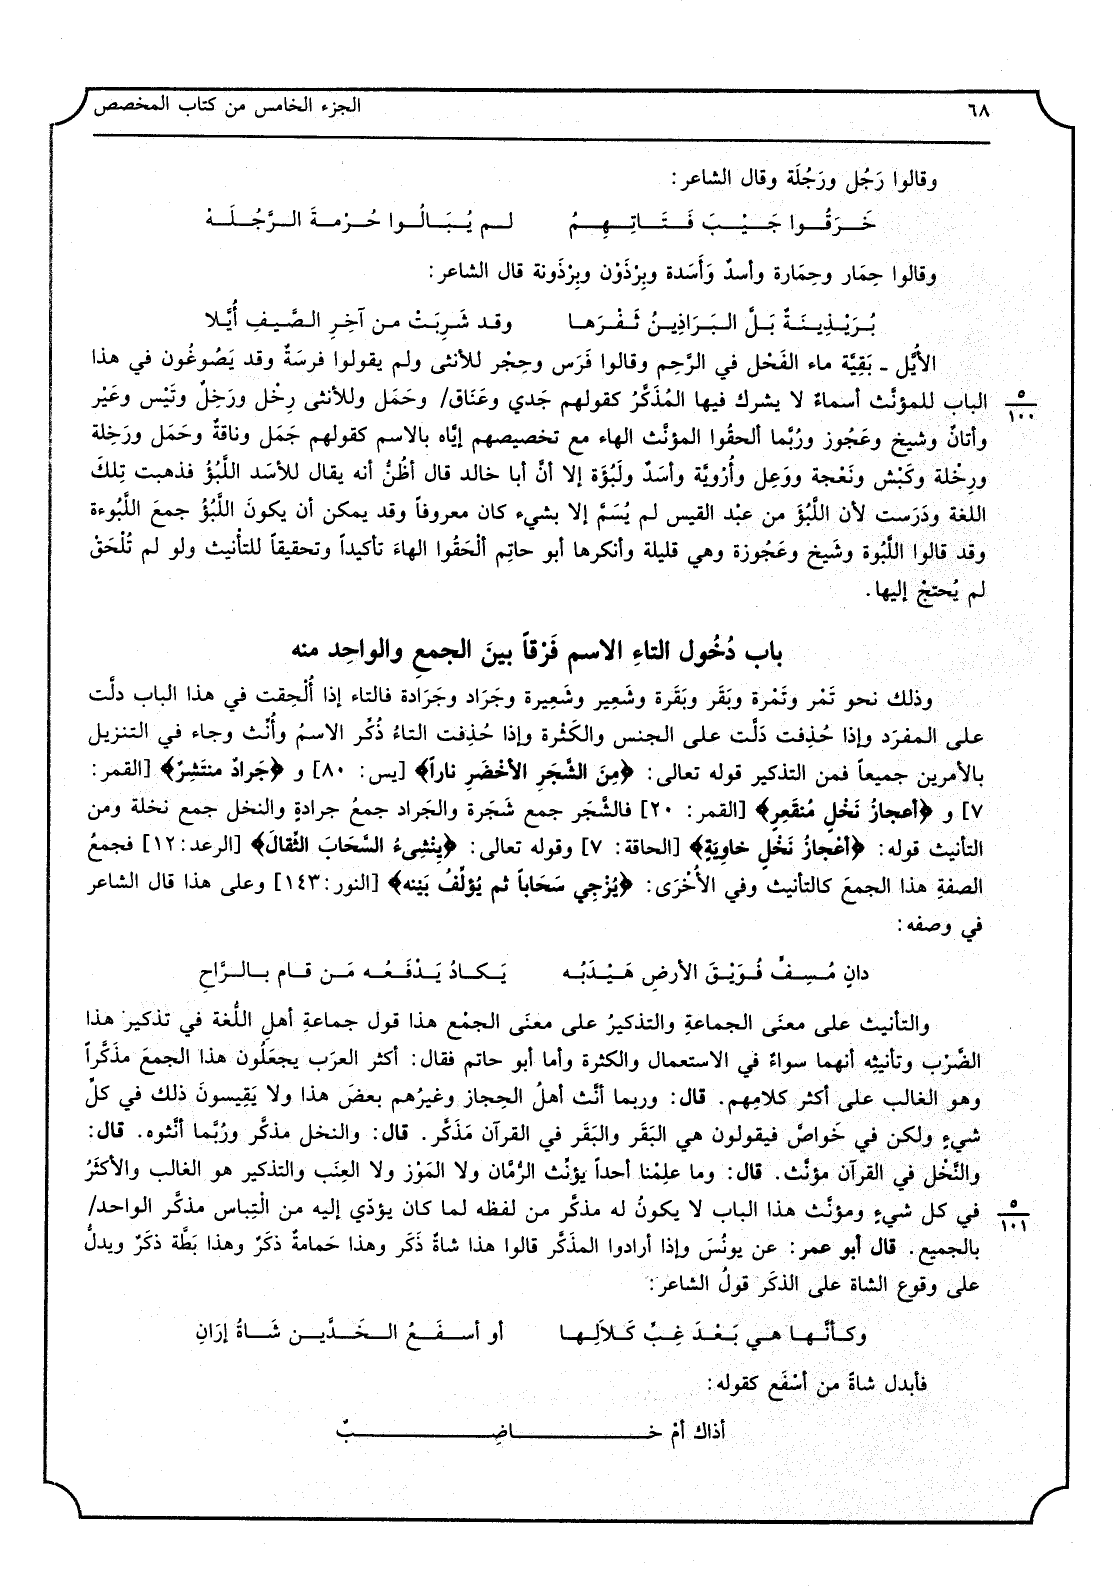 ٦٨ الجزء الخامس من كتاب المخصص
وقالوا رَجُل ورَجُلَة وقال الشاعر:
خَرَقُوا جَيْبَ فَتَاتِهِمُ لم يُبَالُوا حُرْمةَ الرَّجُلَهْ
وقالوا حِمَار وحِمَارة وأسدٌ وَأَسَدة وبِرْذَوْن وبِرْذَونة قال الشاعر:
بُرَيْذِينَةٌ بَلَّ البَرَاذِينُ ثَفْرَها وقد شَرِبَتْ من آخِرِ الصَّيفِ أُيَّلا
الأُيَّل ـ بَقِيَّة ماء الفَحْل في الرَّحِم وقالوا فَرَس وحِجْر للأنثى ولم يقولوا فرسَةٌ وقد يَصُوغُون في هذا
٥
١٠٠
الباب للمؤنَّث أسماءً لا يشرك فيها المُذَكَّرُ كقولهم جَدي وعَنَاق/ وحَمَل وللأنثى رِخْل ورَخِلٌ وتَيْس وعَيْر
وأتانٌ وشيخ وعَجُوز ورُبَّما ألحقُوا المؤنَّث الهاء مع تخصيصهم إيَّاه بالاسم كقولهم جَمَل وناقةٌ وحَمَل ورَخِلة
ورِخْلة وكَبْش ونَعْجة ووَعِل وأُرْويَّة وأسَدٌ ولَبُؤَة إلا أنَّ أبا خالد قال أظُنُّ أنه يقال للأسد اللَّبُؤُ فذهبت تِلكَ
اللغة ودَرَست لأن اللَّبُؤَ من عبْد القيس لم يُسَمَّ إلا بشيء كان معروفاً وقد يمكن أن يكونَ اللَّبُؤُ جمعَ اللَّبُوءة
وقد قالوا اللَّبُوة وشَيخ وعَجُوزة وهي قليلة وأنكرها أبو حاتِم ألْحَقُوا الهاءَ تأكيداً وتحقيقاً للتأنيث ولو لم تُلْحَقْ
لم يُحتجْ إليها.
باب دُخُول التاءِ الاسم فَرْقاً بينَ الجمعِ والواحِد منه
وذلك نحو تَمْر وتَمْرة وبَقَر وبَقَرة وشَعِير وشَعِيرة وجَرَاد وجَرَادة فالتاء إذا أُلْحِقت في هذا الباب دلَّت
على المفرَد وإذا حُذِفت دَلَّت على الجنس والكَثْرة وإذا حُذِفت التاءُ ذُكِّر الاسمُ وأُنِّث وجاء في التنزيل
بالأمرين جميعاً فمن التذكير قوله تعالى: ﴿مِنَ الشَّجَرِ الأَخْضَرِ ناراً﴾ [يس: ٨٠] و ﴿جَرادٌ منتَشِرٌ﴾ [القمر:
٧] و ﴿أعجازُ نَخْلٍ مُنقَعِرٍ﴾ [القمر: ٢٠] فالشَّجَر جمع شَجَرة والجَراد جمعُ جرادةٍ والنخل جمع نخلة ومن
التأنيث قوله: ﴿أعْجازُ نَخْلٍ خاوِيَةٍ﴾ [الحاقة: ٧] وقوله تعالى: ﴿يُنْشِىءُ السَّحَابَ الثِّقالَ﴾ [الرعد: ١٢] فجمعُ
الصفةِ هذا الجمعَ كالتأنيث وفي الأُخْرَى: ﴿يُزْجِي سَحَاباً ثم يُؤَلِّفُ بَيْنه﴾ [النور: ١٤٣] وعلى هذا قال الشاعر
في وصفه:
دانٍ مُسِفٌّ فُوَيْقَ الأرضِ هَيْدَبُه يَكَادُ يَدْفَعُه مَن قام بالرَّاحِ
والتأنيث على معنَى الجماعةِ والتذكيرُ على معنَى الجمْع هذا قول جماعةِ أهلِ اللُّغة في تذكير هذا
الضَّرْب وتأنيثِه أنهما سواءٌ في الاستعمال والكثرة وأما أبو حاتم فقال: أكثر العرَب يجعَلُون هذا الجمعَ مذكَّراً
وهو الغالب على أكثر كلامِهم. قال: وربما أنَّث أهلُ الحِجاز وغيرُهم بعضَ هذا ولا يَقِيسونَ ذلك في كلِّ
شيءٍ ولكن في خَواصَّ فيقولون هي البَقَر والبَقَر في القرآن مَذَكَّر. قال: والنخل مذكَّر ورُبَّما أنَّثوه. قال:
والنَّخْل في القرآن مؤنَّث. قال: وما علِمْنا أحداً يؤنِّث الرُّمَّان ولا المَوْز ولا العِنَب والتذكير هو الغالب والأكثَرُ
٥
١٠١
في كل شيءٍ ومؤنَّث هذا الباب لا يكونُ له مذكَّر من لفظه لما كان يؤدّي إليه من الْتِباس مذكَّر الواحد/
بالجميع. قال أبو عمر: عن يونُسَ وإذا أرادوا المذكَّر قالوا هذا شاةٌ ذَكَر وهذا حَمامةٌ ذكَرٌ وهذا بَطَّة ذكَرٌ ويدلُّ
على وقوع الشاة على الذكَر قولُ الشاعر:
وكأنَّها هي بَعْدَ غِبِّ كَلاَلِها أو أسفَعُ الخَدَّين شَاةُ إرَانِ
فأبدل شاةً من أسْفَع كقوله:
أذاك أمْ خَاضِبٌ